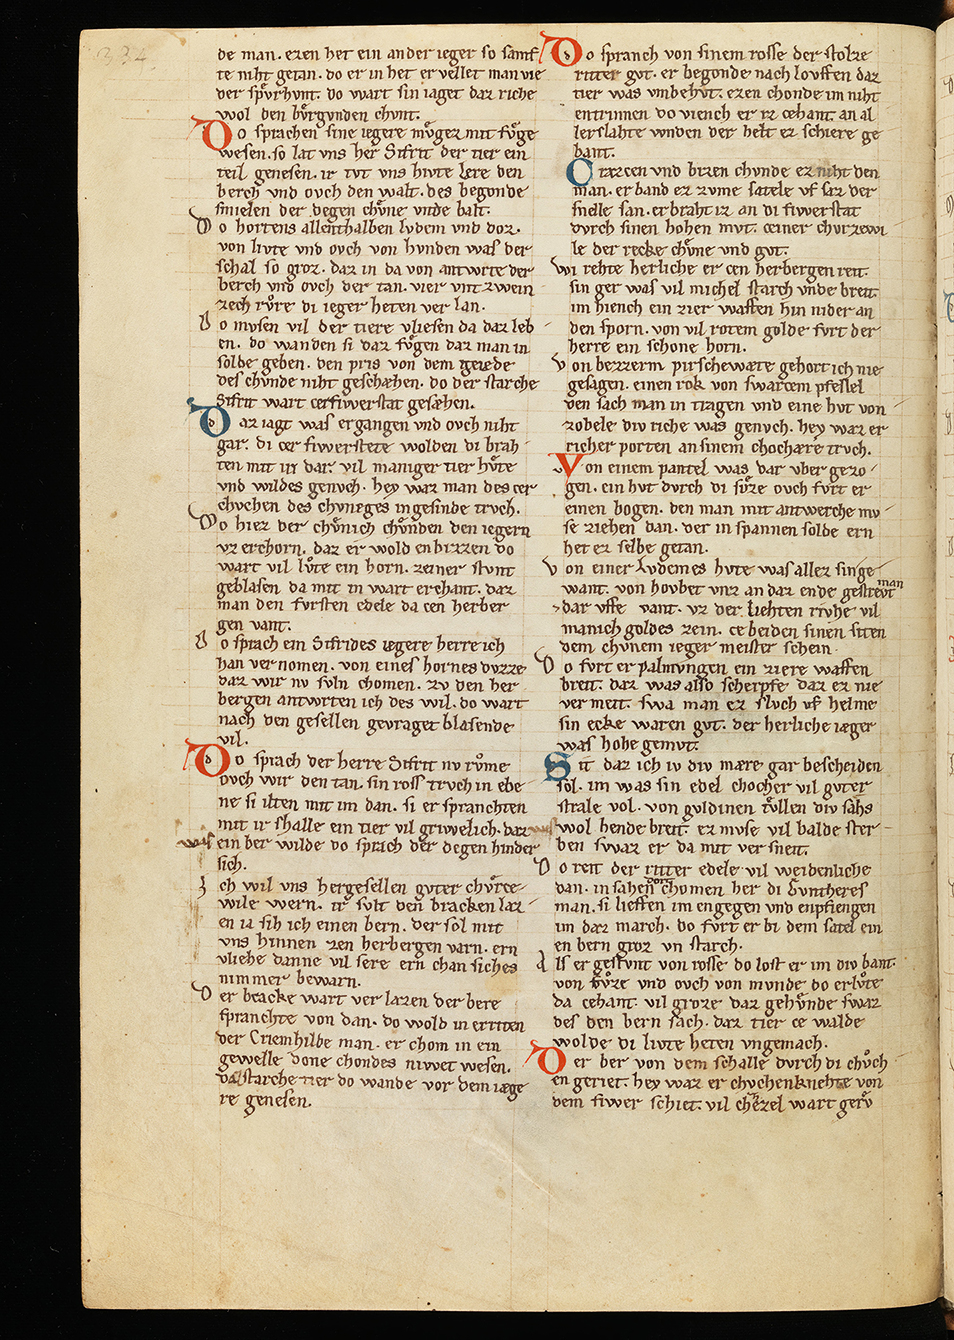 334
de man. ezen het ein ander ieger so samf
te niht getan. do er in het ervellet man vie
der spvͦrhvnt. do wart sin iaget daz riche
wol den bvͦrgvnden chvnt.
Do sprachen sine iegere mvͦgez mit fvͦge
wesen. so lat vns her Sifrit der tier ein
teil genesen. ir tvt vns hivte lere den
berch vnd ovch den walt. des begonde
smielen der degen chvͤne vnde balt.
Do hortens allenthalben lvdem vnd doz.
von livte vnd ovch von hvnden was der
schal so groz. daz in da von antwrte der
berch vnd ovch der tan. vier vnt zwein
zech rvͦre di ieger heten ver lan.
Do mvsen vil der tiere vliesen da daz leb
en. do wanden si daz fvͦgen daz man in
solde geben. den pris von dem geiæde
des chvnde niht geschæhen. do der starche
Sifrit wart cer fiwerstat gesæhen.
Daz iagt was ergangen vnd ovch niht
gar. di cer fiwerstete wolden di brah
ten mit in dar. vil maniger tier hvͤte
vnd wildes genvch. hey waz man des cer
chvchen des chvneges ingesinde trvch.
Do hiez der chvͤnich chvͤnden den iegern
vz erchorn. daz er wold enbizzen do
wart vil lvͦte ein horn. zeiner stvnt
geblasen da mit in wart erchant. daz
man den fvrsten edele da cen herber
gen vant.
Do sprach ein Sifrides iægere herre ich
han vernomen. von eines hornes dvzze
daz wir nv svln chomen. zv den her
bergen antwrten ich des wil. do wart
nach den gesellen gevraget blasende
vil.
Do sprach der herre Sifrit nv rvͦme
ovch wir den tan. sin ross trvch in ebe
ne si ilten mit im dan. si er spranchten
mit ir schalle ein tier vil griwelich. daz was
ein ber wilde do sprach der degen hinder
sich.
Ich wil vns hergesellen gvter chvͦrce
wile wern. ir svlt den bracken laz
en ia sih ich einen bern. der sol mit
vns hinnen zen herbergen varn. ern
vliehe danne vil sere ern chan siches
nimmer bewarn.
Der bracke wart ver lazen der bere
spranchte von dan. do wold in erriten
der Criemhilde man. er chom in ein
gewelle done chondes niwet wesen.
daz starche tier do wande vor dem iæge
re genesen.
Do spranch von sinem rosse der stolze
ritter gvt. er begonde nach lovffen daz
tier was vnbehvͦt. ezen chonde im niht
entrinnen do viench er iz cehant an al
lerslahte wnden der helt ez schiere ge
bant.
Crazcen vnd bizen chvnde ez niht den
man. er band ez zvme satele vf saz der
snelle san. er braht iz an di fiwerstat
dvrch sinen hohen mvt. ceiner chvrzewi
le der recke chvͤne vnd gvt.
Wi rehte herliche er cen herbergen reit.
sin ger was vil michel starch vnde breit.
im hiench ein zier waffen hin nider an
den sporn. von vil rotem golde fvrt der
herre ein schone horn.
Von bezzerm pirschewæte gehort ich nie
gesagen. einen rok von swarcem pfellel
den sach man in tragen vnd eine hvt von
zobele div riche was genvch. hey waz er
richer porten an sinem chochære trvch.
Von einem pantel was dar vber gezo
gen. ein hvt dvrch di svͤze ovch fvrt er
einen bogen. den man mit antwerche mv
se ziehen dan. der in spannen solde ern
het ez selbe getan.
Von einer lvdemes hvte was allez sin ge
want. von hovbet vnz an daz ende gestrevt man
dar vffe vant. vz der liehten rivhe vil
manich goldes zein. ce beiden sinen siten
dem chvnem ieger meister schein.
Do fvrt er palmvngen ein ziere waffen
breit. daz was also scherpfe daz ez nie
ver meit. swa man ez slvch vf helme
sin ecke waren gvt. der herliche iæger
was hohe gemvt.
Sit daz ich iv div mære gar bescheiden
sol. im was sin edel chocher vil gvter
strale vol. von gvldinen tvͤllen div sahs
wol hende breit. ez mvse vil balde ster
ben swaz er da mit ver sneit.
Do reit der ritter edele vil weidenliche
dan. in sahen dort chomen her di Gvntheres
man. si lieffen im engegen vnd enpfiengen
im daz march. do fvrt er bi dem satel ein
en bern groz vn starch.
Als er gestvnt von rosse do lost er im div bant.
von fvͤze vnd ovch von mvnde do erlvͦte
da cehant. vil groze daz gehvͤnde swaz
des den bern sach. daz tier ce walde
wolde di livte heten vngemach.
Der ber von dem schalle dvrch di chvͦch
en geriet. hey waz er chvchenknehte von
dem fiwer schiet. vil chezzel wart gerv